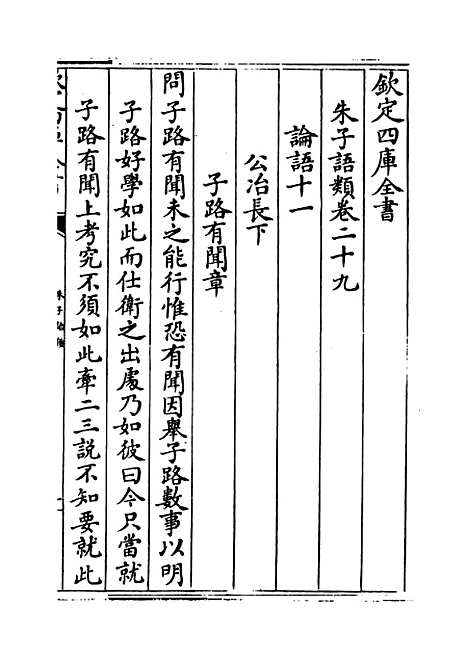 欽定四庫全書
朱子語類卷二十九
論語十一
公冶長下
子路有聞章
問子路有聞未之能行惟恐有聞因舉子路數事以明
子路好學如此而仕衛之出處乃如彼曰今只當就
子路有聞上考究不須如此牽二三說不知要就此